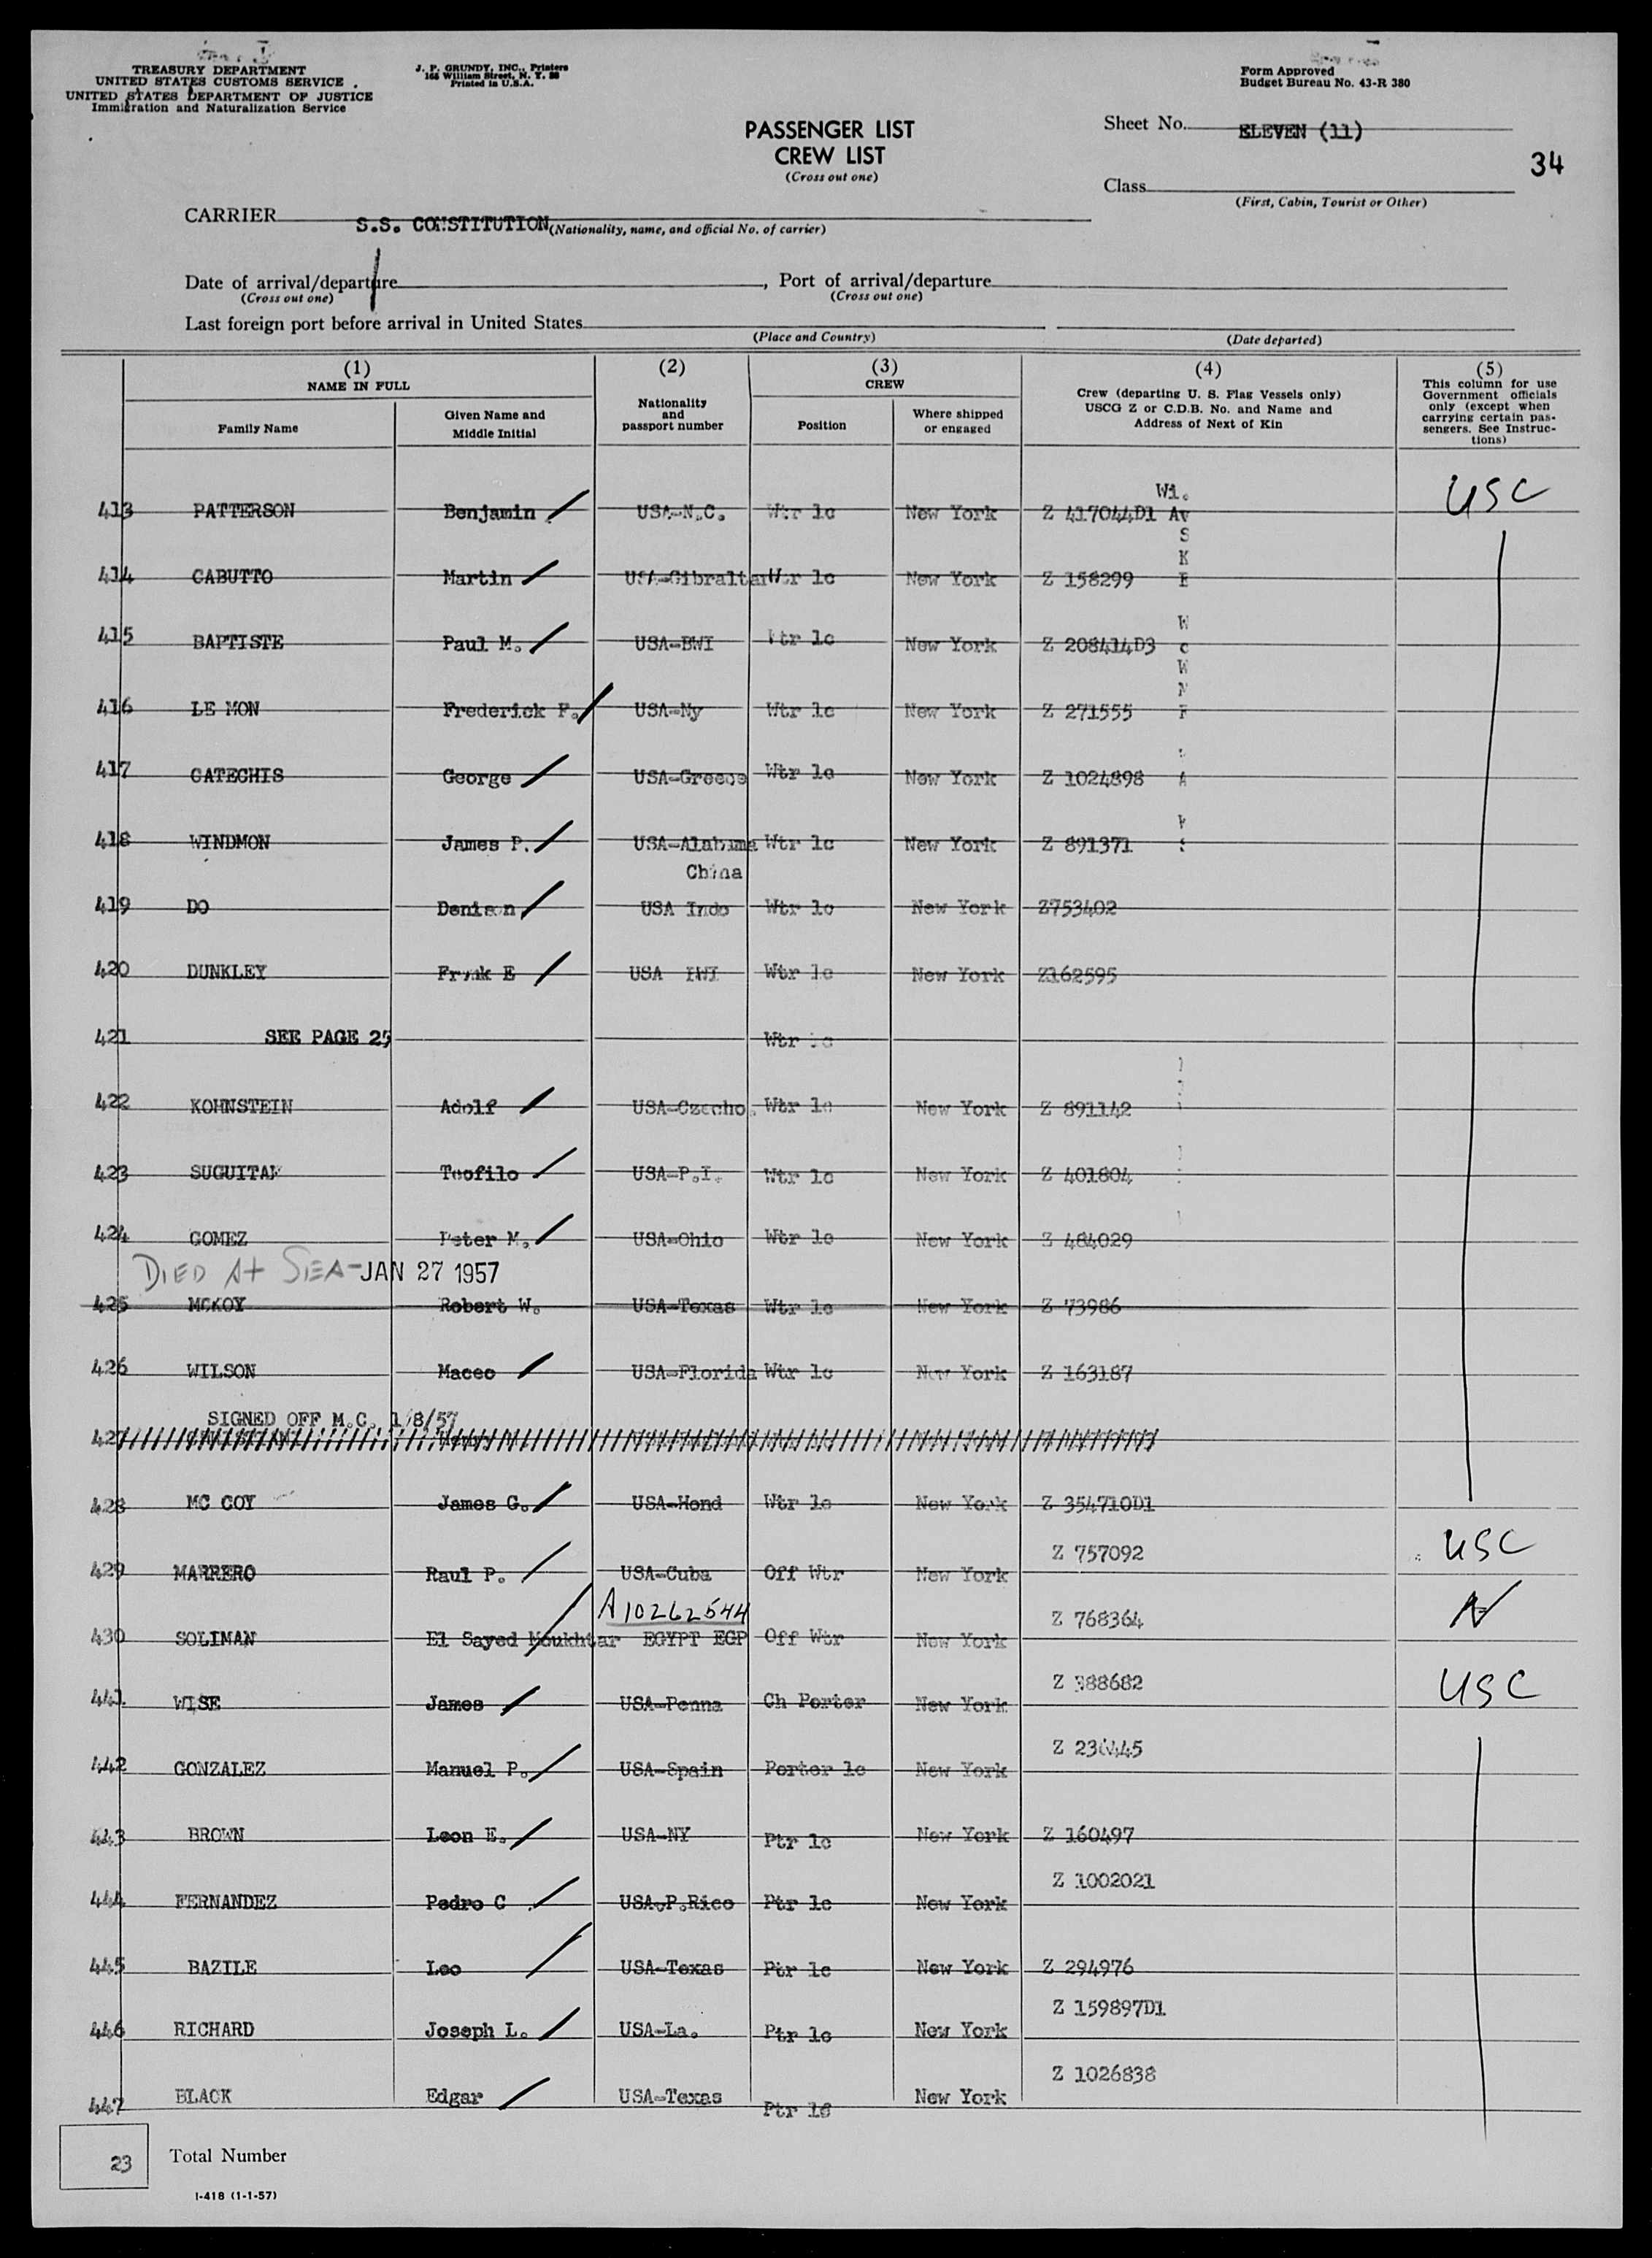 TREASURY DEPARTMENT
UNITED STATES CUSTOMS SERVICE
UNITED STATES DEPARTMENT OF JUSTICE
Immigration and Naturalization Service
J. P. GRUNDY, INC., Printers
Printed in U.S.A.
Form Approved
Budget Bureau No. 43-R 380
PASSENGER LIST
CREW LIST
(Cross out one)
Sheet No. ELEVEN (11)
34
Class
(First, Cabin, Tourist or Other)
CARRIER S.S. CONSTITUTION (Nationality, name, and official No. of carrier)
Date of arrival/departure , Port of arrival/departure
(Cross out one) (Cross out one)
Last foreign port before arrival in United States
(Place and Country) (Date departed)
(1) NAME IN FULL
Family Name
Given Name and Middle Initial
(2) Nationality and passport number
(3) CREW
Position
Where shipped or engaged
(4) Crew (departing U. S. Flag Vessels only) USCG Z or C.D.B. No. and Name and Address of Next of Kin
(5) This column for use Government officials only (except when carrying certain passengers. See Instructions)
Wi.
413 PATTERSON Benjamin USA-N.C. Wtr 1c New York Z 417044D1 Av USC
S
K
414 CABUTTO Martin USA-Gibraltar Wtr 1c New York Z 158299 E
W
415 BAPTISTE Paul M. USA-BWI Wtr 1c New York Z 208414D3 c
W
N
416 LE MON Frederick F. USA-Ny Wtr 1c New York Z 271555 F
417 CATECHIS George USA-Greece Wtr 1c New York Z 1024898 A
418 WINDMON James P. USA-Alabama Wtr 1c New York Z 891371
China
419 DO Denison USA Indo Wtr 1c New York Z753402
420 DUNKLEY Frank E USA Wtr 1c New York Z162595
421 SEE PAGE 25 Wtr 1c
422 KOHNSTEIN Adolf USA-Czecho. Wtr 1c New York Z 891142
423 SUGUITAN Teofilo USA-P.I. Wtr 1c New York Z 401804
424 GOMEZ Peter M. USA-Ohio Wtr 1c New York Z 484029
DIED At SEA-JAN 27 1957
425 MCKOY Robert W. USA-Texas Wtr 1c New York Z 73986
426 WILSON Maceo USA-Florida Wtr 1c New York Z 163187
SIGNED OFF M.C. 1/8/57
427
428 MC COY James G. USA-Hond Wtr 1c New York Z 354710D1
429 MARRERO Raul P. USA-Cuba Off Wtr New York Z 757092 USC
A10262544
430 SOLIMAN El Sayed Moukhtar EGYPT EGP Off Wtr New York Z 768364
441 WISE James USA-Penna Ch Porter New York Z 388682 USC
442 GONZALEZ Manuel P. USA-Spain Porter 1c New York
443 BROWN Leon E. USA-NY Ptr 1c New York Z 160497
444 FERNANDEZ Pedro C. USA-P.Rico Ptr 1c New York Z 1002021
445 BAZILE Leo USA-Texas Ptr 1c New York Z 294976
446 RICHARD Joseph L. USA-La. Ptr 1c New York Z 159897D1
447 BLACK Edgar USA-Texas Ptr 1c New York Z 1026838
23 Total Number
I-418 (1-1-57)